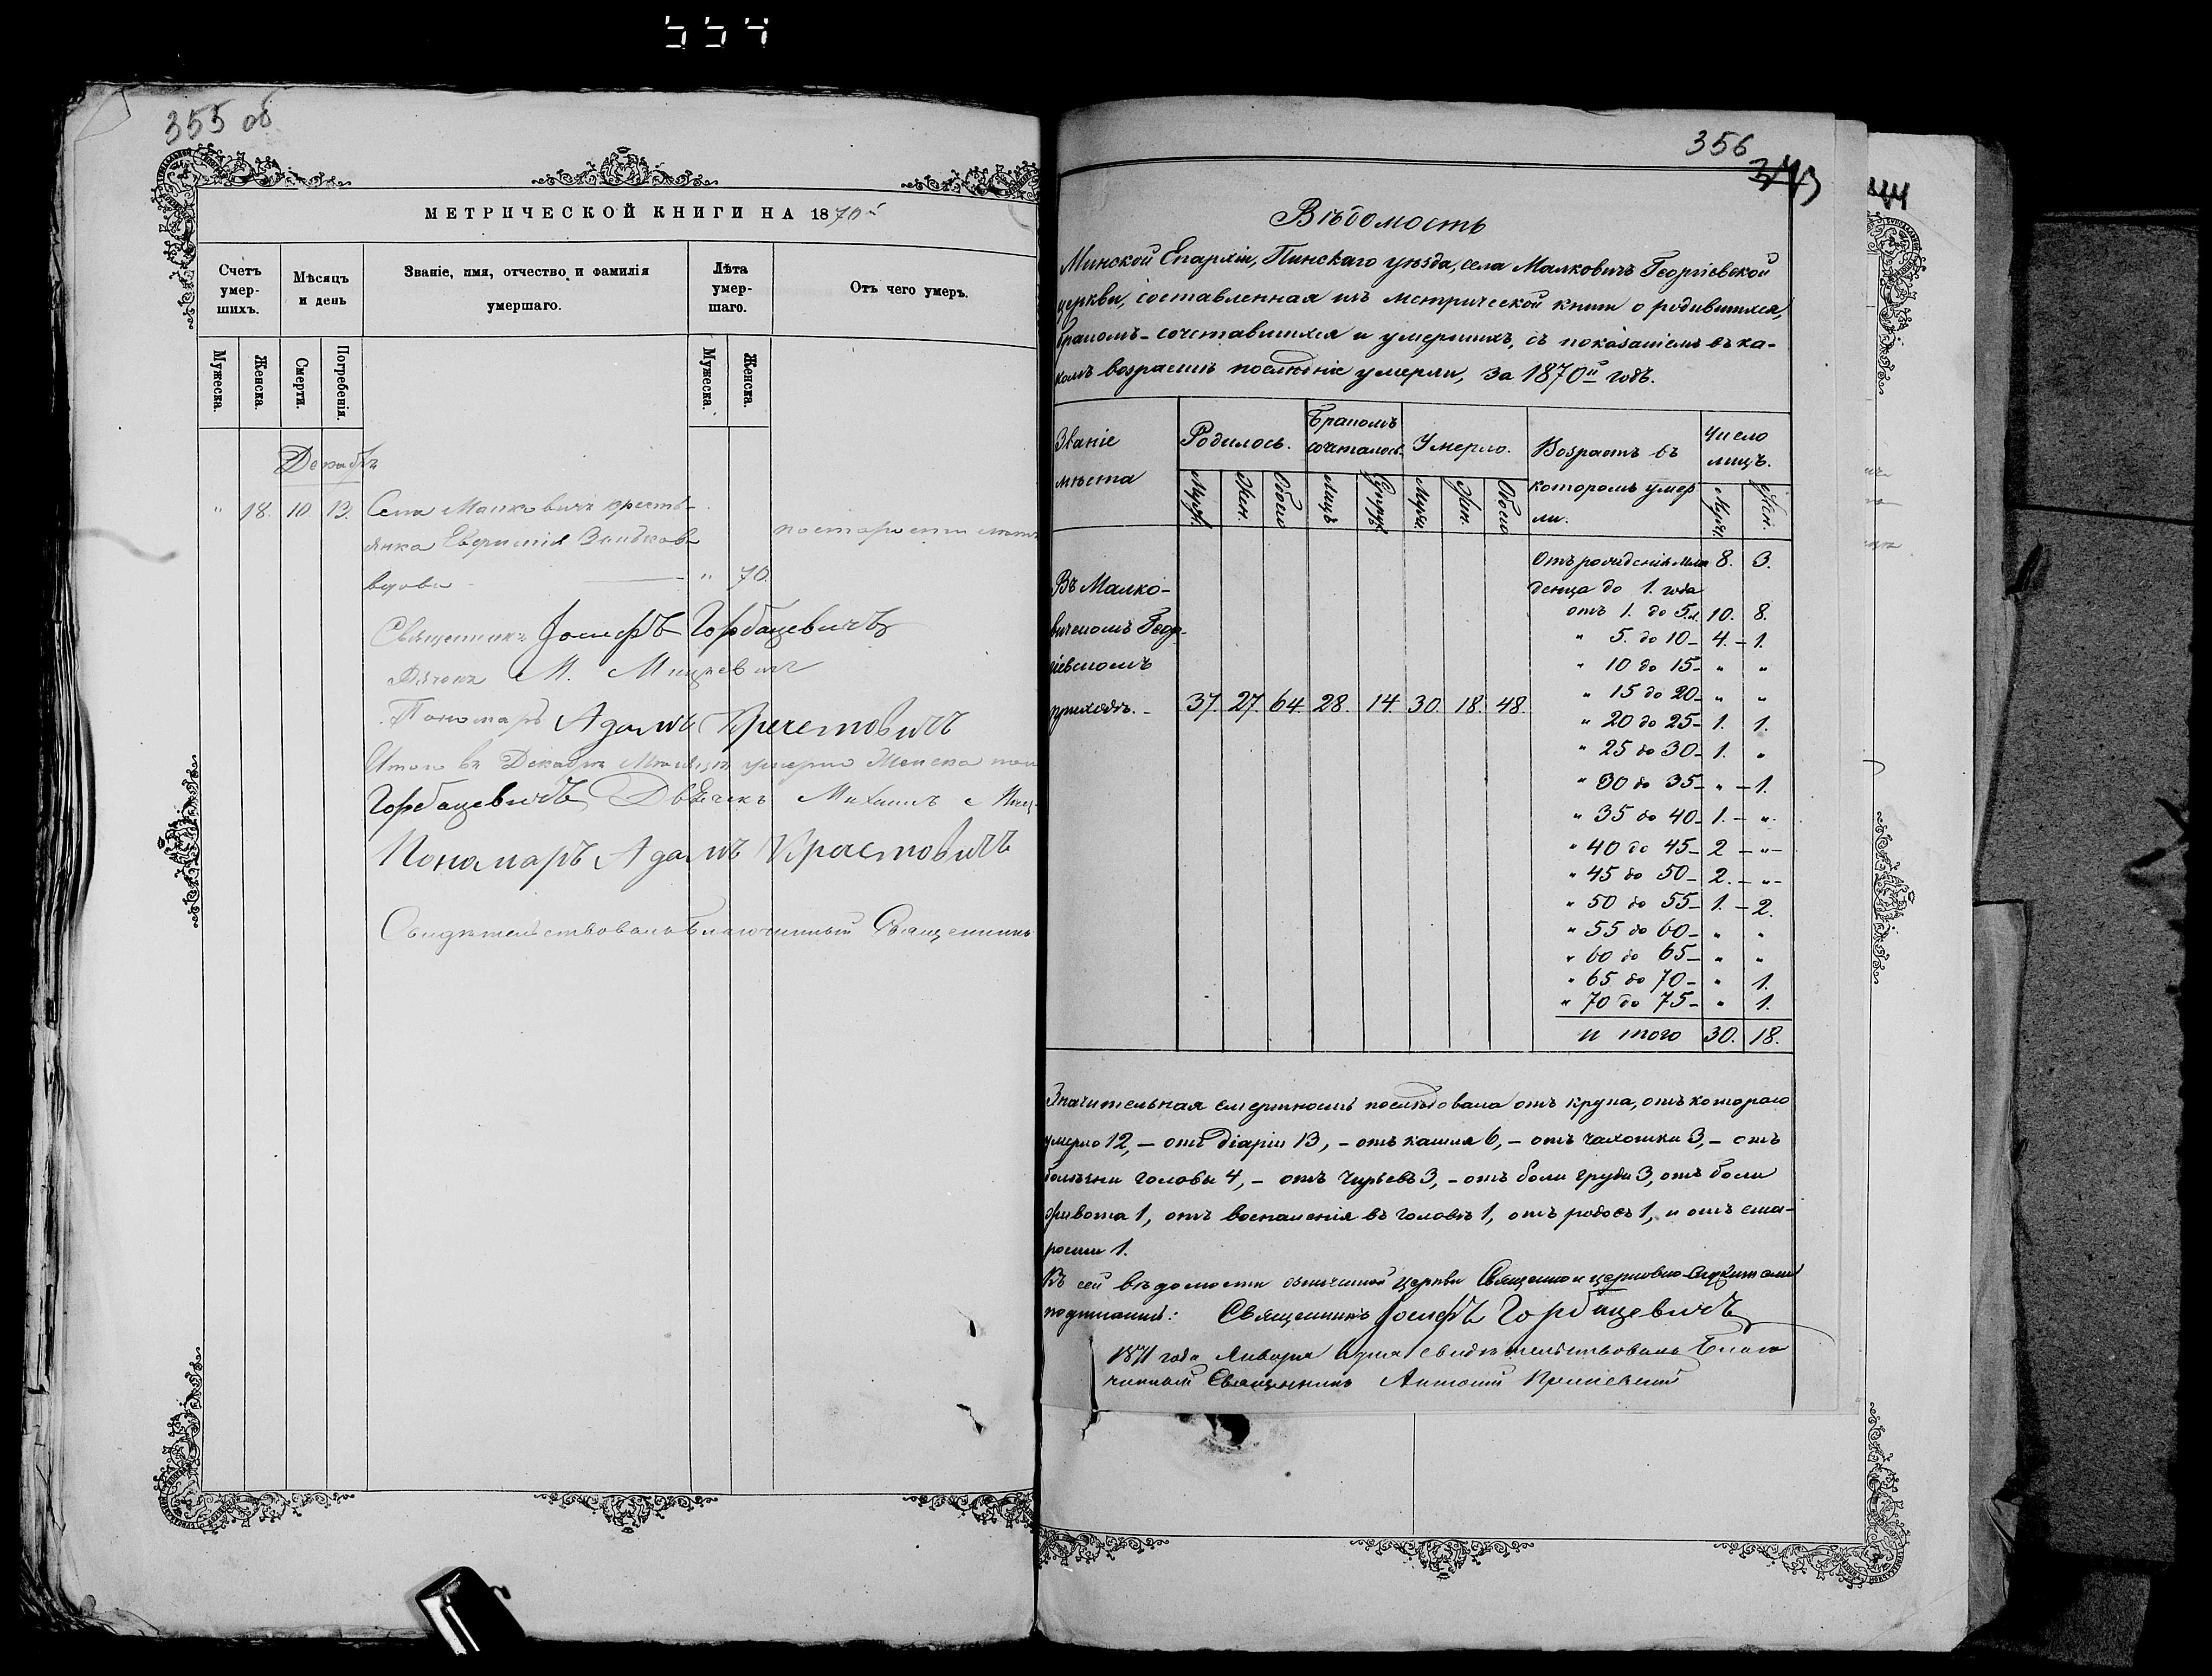 554
355 об
МЕТРИЧЕСКОЙ КНИГИ НА 1870й
Счетъ умер-шихъ.
Мѣсяцъ и день
Званіе, имя, отчество и фамилія умершаго.
Лѣта умер-шаго.
Отъ чего умеръ.
Мужеска.
Женска.
Смерти.
Погребенія.
Мужеска.
Женска.
Декабрь
" 18. 10. 13. Села Малковичъ кресть-
янка
вдова " 70.
Священникъ Іосифъ Горбацевичъ
Дячекъ М. Мицкевичъ
Пономарь Адамъ Кречетовичъ
Итого въ Декабрѣ Мѣсяцѣ умерло Женска
Горбацевичъ Дьячекъ Михаилъ
Пономаръ Адамъ
Свидѣтельствовалъ Благочинный Священникъ
356
343
Вѣдомость
Минской Епархіи, Пинскаго уѣзда, села Малковичъ Георгіевской
церкви, составленная изъ метрической книги о родившихся,
бракомъ-сочетавшихся и умершихъ, съ показаніемъ въ ка-
комъ возрастѣ послѣдніе умерли, за 1870й годъ.
Званіе мѣста
Родилось.
Бракомъ сочеталось.
Умерло.
Возрастъ въ которомъ умер ли.
Число лицъ.
Муж. Жен. Обоего Лицъ Супруж. Муж. Жен. Обоего Муж. Жен.
Въ Малко-
вичскомъ Геор-
гіевскомъ
приходѣ. - 37. 27. 64. 28. 14. 30. 18. 48.
Отъ рожденія мла 8. 3.
денца до 1. года
отъ 1. до 5.л. 10. 8.
" 5. до 10 - 4. - 1.
" 10 до 15 - " "
" 15 до 20 - " "
" 20 до 25 - 1. 1.
" 25 до 30 - 1. "
" 30 до 35 - " - 1.
" 35 до 40 - 1. - ".
" 40 до 45 - 2 - " -
" 45 до 50 - 2. - " -
" 50 до 55 - 1. - 2.
" 55 до 60 - " "
" 60 до 65 - " "
" 65 до 70 - " 1.
" 70 до 75 - " 1.
и того 30. 18.
Значительная смертность послѣдовала отъ крупа, отъ котораго
умерло 12, - отъ діаріи 13, - отъ кашля 6, - отъ чахотки 3, - отъ
болѣзни головы 4, - отъ чирьевъ 3, - отъ боли груди 3, отъ боли
живота 1, отъ воспаленія въ головѣ 1, отъ родовъ 1, и отъ ста-
рости 1.
Къ сей вѣдомости означенной церкви Священно и церковно-служители
подписались: Священникъ Іосифъ Горбацевичъ
1871 года Января дня свидѣтельствовалъ Благо
чинный Священникъ Антоній